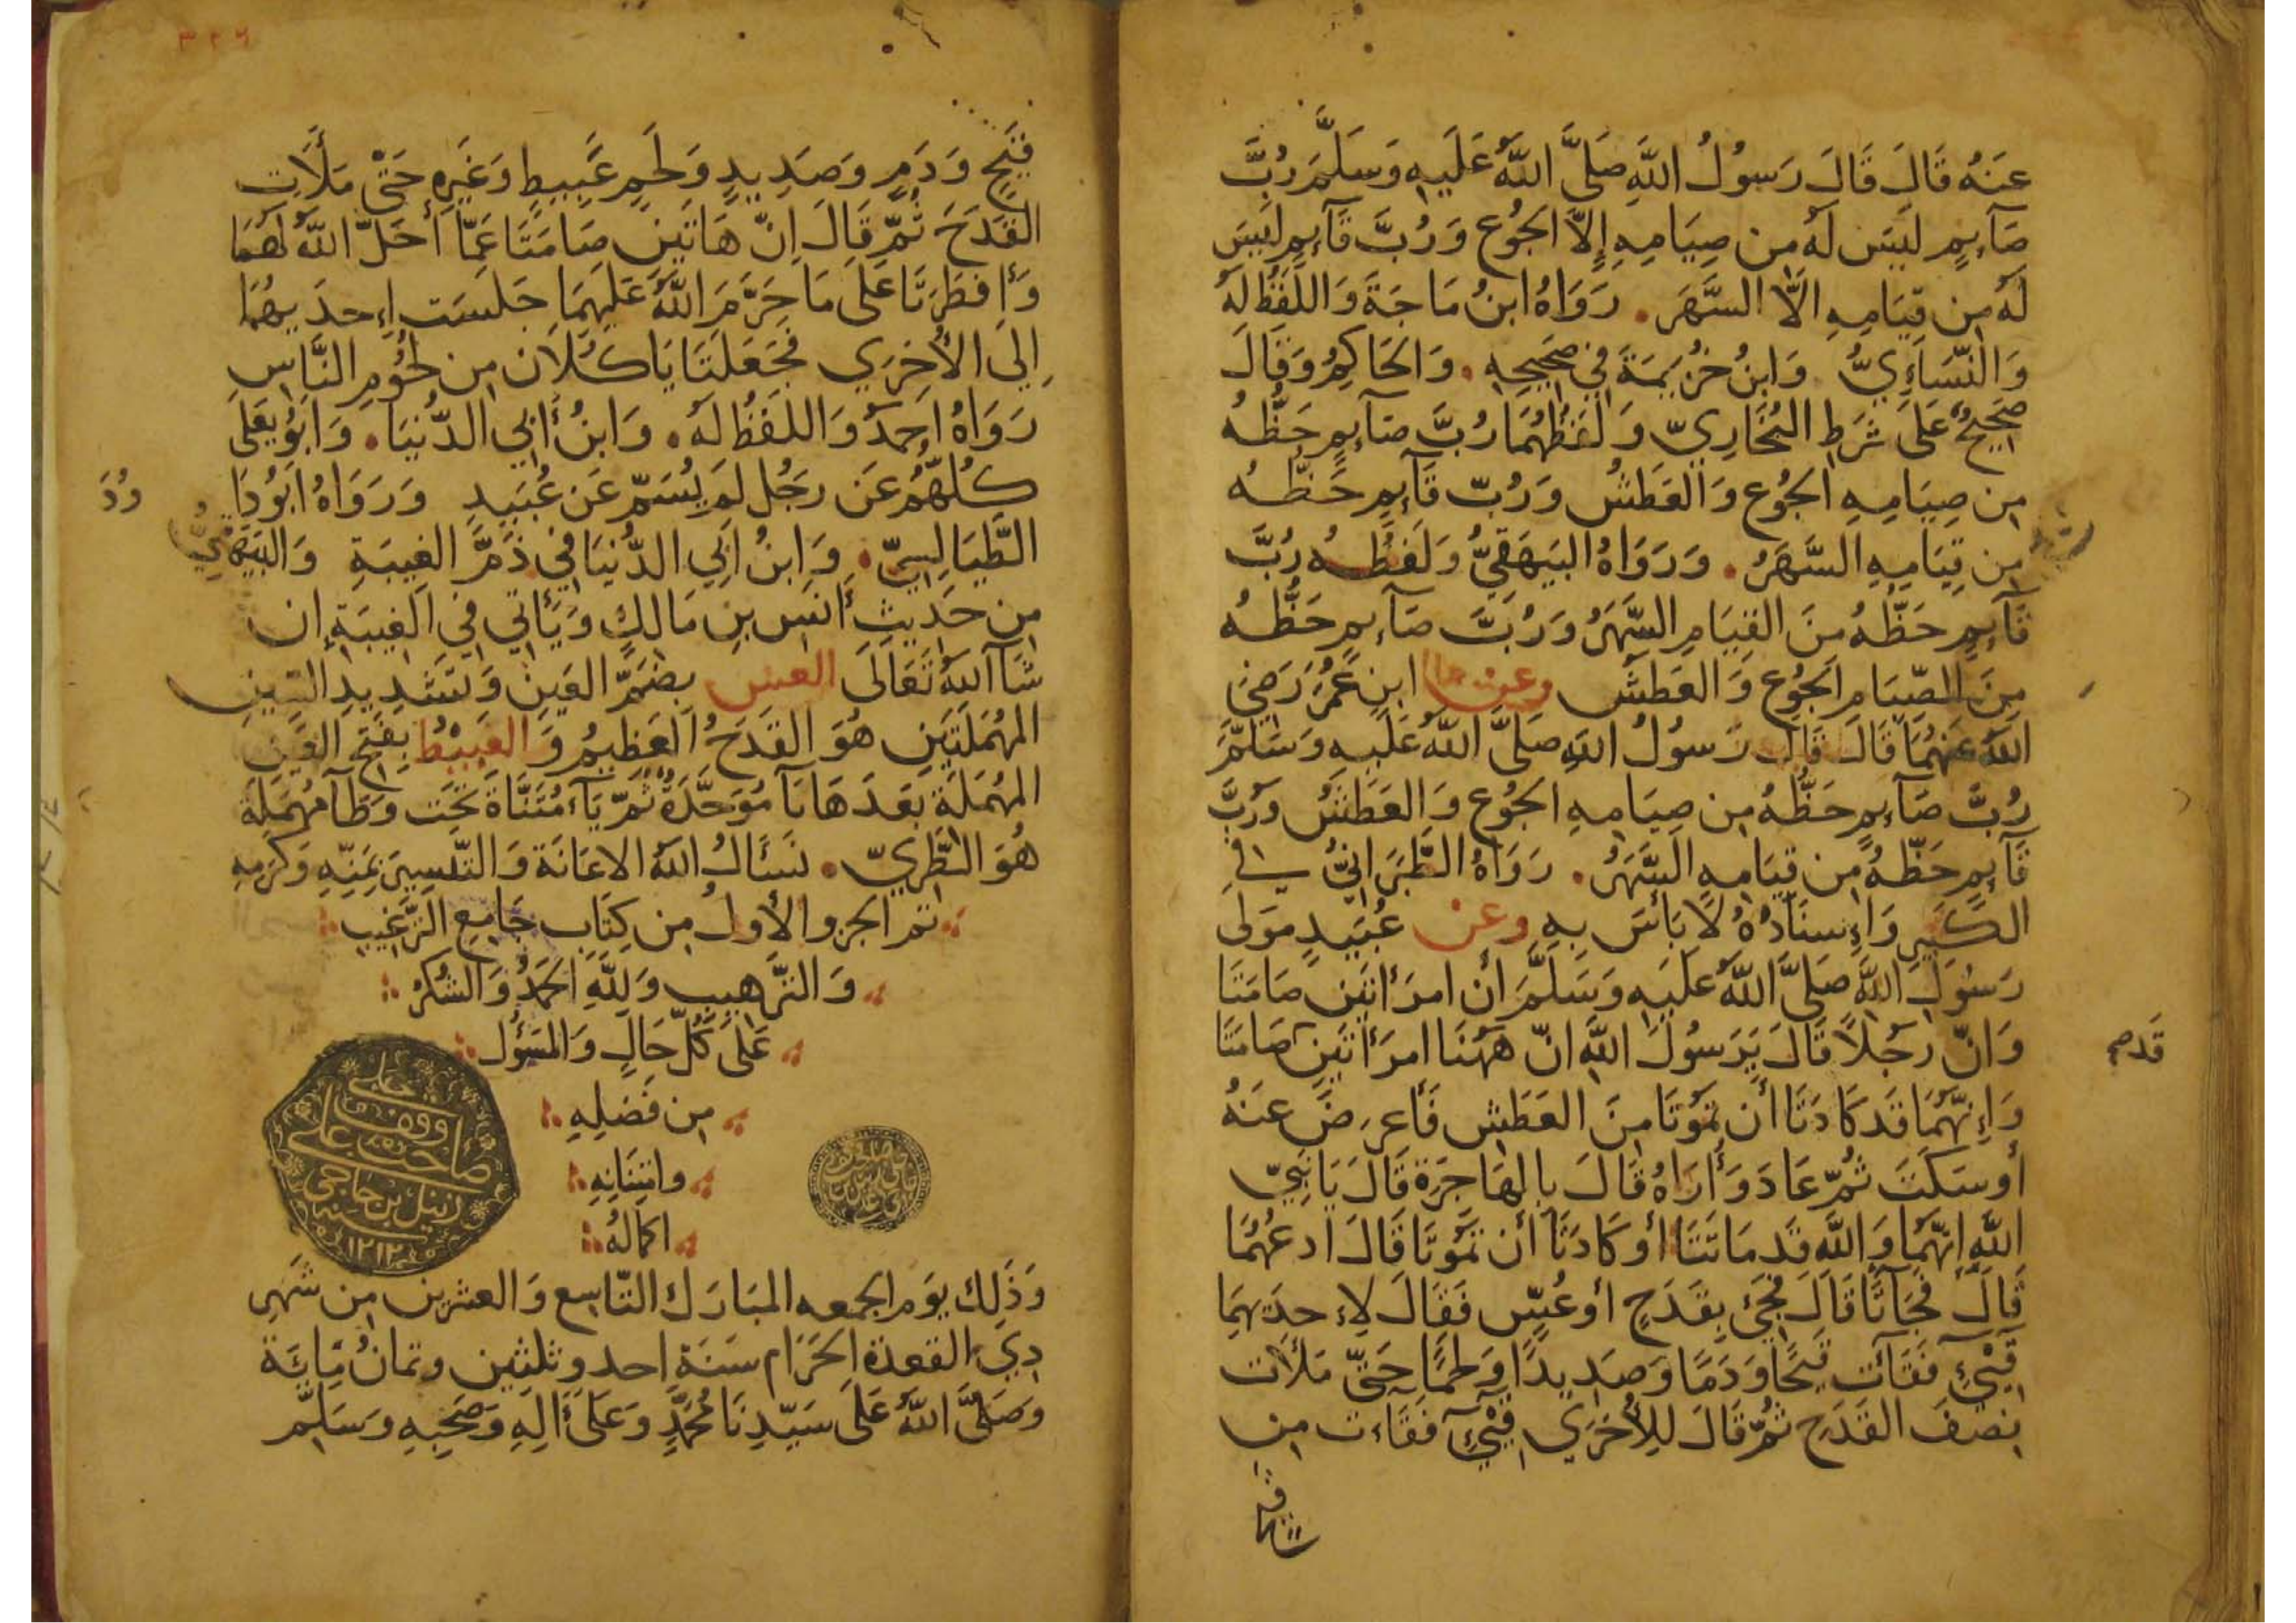 عَنهُ قَالَ قَالَ رَسُولُ اللَّهِ صَلَّى اللَّهُ عَلَيهِ وَسَلَّمَ رُبَّ
صَآئِمٍ لَيسَ لَهُ مِن صِيَامِهِ إِلاَّ الجُوع وَرُبَّ قَآئِمٍ لَيسَ
لَهُ مِن قِيَامِهِ اِلَّا السَّهَرَ . رَوَاهُ ابنُ مَاجَة وَاللَّفظُ لَهُ
وَالنَّسَاءِيُّ وَابنُ خُزَيمَةَ فِي صَحِيحِهِ . وَالحَاكِمُ وَقَالَ
صَحِيحٌ عَلَى شَرطِ البُخَارِيّ وَلَفظُهُمَا رُبَّ صَآئِمٍ حَظُّهُ
مِن صِيَامِهِ الجُوع وَالعَطَشُ وَرُبّ قَآئِمٍ حَظُّهُ
مِن قِيَامِهِ السَّهَرُ . وَرَوَاهُ البَيهَقِيُّ وَلَفظُهُ رُبَّ
قَآئِمٍ حَظّهُ مِنَ القِيَامِ السَّهَرُ وَرُبَّ صَآئِمٍ حَظُّهُ
مِنَ الصّيَامِ الجُوع وَالعَطَش وعن ابنِ عُمَرَ رَضيَ
اللهُ عَنهُمَا قَالَ قَالَ رَسُولُ اللهِ صَلَّى اللهُ عَلَيهِ وَسَلَّمَ
رُبَّ صَآئِمٍ حَظُّهُ مِن صِيَامِهِ الجُوع وَالعَطَشُ وَرُبَّ
قَآئِمٍ حَظّهُ مِن قِيَامِهِ السَّهَرُ . رَوَاهُ الطَّبَرَانِيُّ فِي
الكَبِيرِ وَإِسنَادُهُ لَا بَأسَ بِهِ وعن عُبَيدٍ مَولَى
رَسُولِ اللهِ صَلَّى اللَّهُ عَلَيهِ وَسَلَّمَ أن امرَأتَينِ صَامَتَا
وَانّ رَجُلاً قَالَ يَرَسُولَ اللَّهِ انّ هَهُنَا امرَأتَينِ صَامَتَا
قدصح
وَإِنّهُمَا قَد كَادَتَا أن تَمُوتَا مِنَ العَطَشِ فَأعرَضَ عَنهُ
أو سَكَتَ ثُمّ عَادَ وَأُرَاهُ قَالَ بِالهَاجرَةِ قَالَ يَا نَبِيّ
اللَّهِ إِنّهُمَا وَاللَّهِ قَد مَاتَتَا أو كَادَتَا أن تَمُوتَا قَالَ ادعُهُمَا
قَالَ فَجَآتَا قَالَ فَجِيَ بِقَدَحٍ أو عُسٍّ فَقَالَ لإحدَيهِمَا
قِيئِي فَقَآءَت قَيحًا وَدَمًا وَصَدِيدًا وَلَحمًا حَتَّى مَلَأت
نِصفَ القَدَحِ ثُمّ قَالَ لِلأخرَى قِيئِي فَقَاءَت مِن
٣٢٦
قَيحٍ وَدَمٍ وَصَدِيدٍ وَلَحمٍ عَبِيطٍ وَغَيرِهِ حَتّى مَلَأت
القَدَحَ ثُمّ قَالَ اِنّ هَاتَينِ صَامَتَا عَمّا أحَلّ اللهُ لَهُمَا
وَأفطَرَتَا عَلَى مَا حَرَّمَ اللَّهُ عَلَيهِمَا جَلَسَت إحدَيهُمَا
اِلَى الأخرَي فَجَعَلَتَا يَاكُلَان مِن لحُومِ النَّاسِ
رَوَاهُ احمَدُ وَاللفظُ لَهُ . وَابنُ أبِي الدّنيَا . وَابُو يَعلَى
كُلّهُم عَن رَجُل لَم يُسَمّ عَن عُبَيدٍ وَرَوَاهُ ابَو دَا
وُدَ
الطّيَالِسِيّ . وَابنُ ابِي الدُّنيَا فِي ذَمّ الغِيبَةِ وَالبَيهَقِيُّ
مِن حَدِيثِ أنَسِ بنِ مَالِكٍ وَيَأتِي فِي الغِيبَةِ إن
شَآ اللهُ تَعَالَى العس بِضَمّ العَينِ وَتشدِيدِ السِّينِ
المُهمَلَتَينِ هُوَ القَدَحُ العَظِيمُ وَالعَبِيطُ بِفَتحِ العَين
المُهمَلَةِ بَعدَهَا بَآ مُوَحَّدَةٌ ثُمّ يَآء مُثَنَّاةَ تَحت وَطَآ مُهمَلَة
هُوَ الطَّرِيّ . نَسَألُ اللهَ الاعَانَةَ وَالتَّيسِيرَ بِمَنِّهِ وَكَرَمِهِ
تم الجزو الأولُ مِن كِتَابِ جَامِع التَّرغِيبِ
وَالتَّرهِيبِ وَلِلَّهِ الحَمدُ وَالشُكرُ
عَلَى كُلّ حَالٍ وَالمَسؤُل
مِن فَضلِهِ
وامتِنَانِهِ
اكمَالهُ
وقف
صاحب علي
بن حاجي
سنه
١٢١٢
وَذَلِكَ يَوم الجمعه المبَارَك التّاسِع وَالعشرين مِن شَهرِ
ذِي القعدة الحَرَام سَنَة احد وثلثين وثمان مِايَة
وَصَلَّى اللَّهُ عَلَى سَيّدِنَا مُحَمَّدٍ وَعَلَى آلِهِ وَصَحبِهِ وَسَلَّم